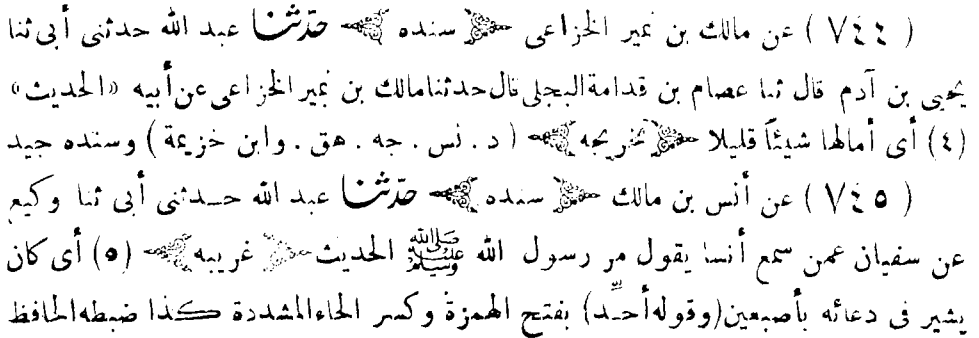 ( ٧٤٤ ) عن مالك بن نمير الخزاعى ﴿ سنده ﴾ حدّثنا عبد الله حدثنى أبى ثنا
يحيى بن آدم قال ثنا عصام بن قدامة البجلى قال حدثنا مالك بن نمير الخزاعى عن أبيه «الحديث»
(٤) أى أمالها شيئاً قليلا ﴿ تخريجه ﴾ ( د . نس . جه . هق . وابن خزيمة ) وسنده جيد
( ٧٤٥ ) عن أنس بن مالك ﴿ سنده ﴾ حدّثنا عبد الله حدثنى أبى ثنا وكيع
عن سفيان عمن سمع أنسا يقول مر رسول الله ﷺ الحديث ﴿ غريبه ﴾ (٥) أى كان
يشير فى دعائه بأصبعين (وقوله أحِّد) بفتح الهمزة وكسر الحاء المشددة كذا ضبطه الحافظ